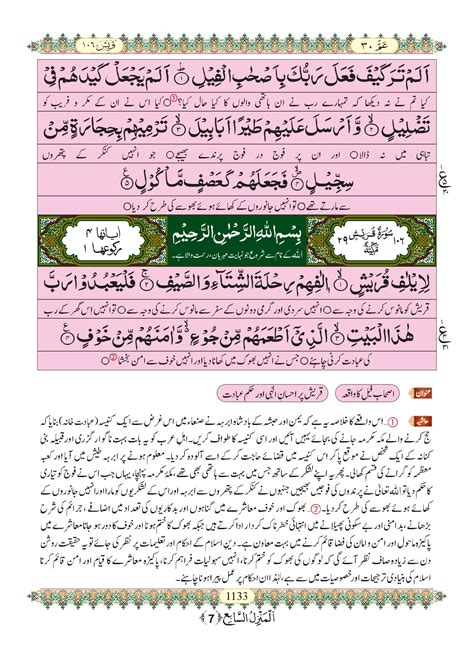 عَمَّ ٣٠
قریش ١٠٦
اَلَمْ تَرَ كَیْفَ فَعَلَ رَبُّكَ بِاَصْحٰبِ الْفِیْلِ ۝١ اَلَمْ یَجْعَلْ كَیْدَهُمْ فِیْ
کیا تم نے نہ دیکھا کہ تمہارے رب نے ان ہاتھی والوں کا کیا حال کیا؟ ○ کیا اس نے ان کے مکر و فریب کو
تَضْلِیْلٍ ۝٢ وَّ اَرْسَلَ عَلَیْهِمْ طَیْرًا اَبَابِیْلَ ۝٣ تَرْمِیْهِمْ بِحِجَارَةٍ مِّنْ
تباہی میں نہ ڈالا ○ اور ان پر فوج در فوج پرندے بھیجے ○ جو انہیں کنکر کے پتھروں
سِجِّیْلٍ ۝٤ فَجَعَلَهُمْ كَعَصْفٍ مَّاْكُوْلٍ ۝٥
سے مارتے تھے ○ تو انہیں جانوروں کے کھائے ہوئے بھوسے کی طرح کر دیا ○
١٠٦ سُوْرَةُ قُرَیْشٍ مَّكِّیَّةٌ ٢٩
بِسْمِ اللّٰهِ الرَّحْمٰنِ الرَّحِیْمِ
اللہ کے نام سے شروع جو نہایت مہربان، رحمت والا ہے۔
اٰیاتها ٤
ركوعها ١
لِاِیْلٰفِ قُرَیْشٍ ۝١ اٖلٰفِهِمْ رِحْلَةَ الشِّتَآءِ وَ الصَّیْفِ ۝٢ فَلْیَعْبُدُوْا رَبَّ
قریش کو مانوس کرنے کی وجہ سے ○ انہیں سردی اور گرمی دونوں کے سفر سے مانوس کرنے کی وجہ سے ○ تو انہیں اس گھر کے رب
هٰذَا الْبَیْتِ ۝٣ الَّذِیْۤ اَطْعَمَهُمْ مِّنْ جُوْعٍ وَّ اٰمَنَهُمْ مِّنْ خَوْفٍ ۝٤
کی عبادت کرنی چاہئے ○ جس نے انہیں بھوک میں کھانا دیا اور انہیں خوف سے امن بخشا ②
عنوان
اصحاب فیل کا واقعہ
قریش پر احسان الٰہی اور حکم عبادت
حاشیہ
①۔ اس واقعے کا خلاصہ یہ ہے کہ یمن اور حبشہ کے بادشاہ ابرہہ نے صنعاء میں اس غرض سے ایک کنیسہ (عبادت خانہ) بنایا کہ
حج کرنے والے مکہ مکرمہ جانے کی بجائے یہیں آئیں اور اسی کنیسہ کا طواف کریں۔ اہل عرب کو یہ بات بہت ناگوار گزری اور قبیلہ بنی
کنانہ کے ایک شخص نے موقع پا کر اس کنیسہ میں قضائے حاجت کر کے اسے آلودہ کر دیا۔ معلوم ہونے پر ابرہہ طیش میں آیا اور کعبہ
معظمہ کو گرانے کی قسم کھالی۔ پھر یہ اپنے لشکر کے ساتھ جس میں بہت سے ہاتھی بھی تھے، مکہ مکرمہ پہنچا، یہاں جب اس نے فوج کو تیاری
کا حکم دیا تو اللہ تعالیٰ نے پرندوں کی فوجیں بھیجیں جنہوں نے چھوٹے چھوٹے پتھروں سے ابرہہ اور اس کے لشکریوں کو مارا اور انہیں جانوروں کے
کھائے ہوئے بھوسے کی طرح کر دیا۔ ②۔ بھوک اور خوف معاشرے میں گناہوں اور بدکاریوں کی تعداد میں اضافے، جرائم کی شرح
بڑھانے، بدامنی اور بے سکونی پھیلانے میں انتہائی خطرناک کردار ادا کرتے ہیں جبکہ بھوک کا خاتمہ ہونا اور خوف کا دور ہو جانا معاشرے میں
پاکیزہ ماحول اور امن و امان کی فضا قائم کرنے میں بہت معاون ہے۔ دین اسلام کے احکام اور تعلیمات پر نظر کی جائے تو یہ حقیقت روشن
دن سے زیادہ صاف نظر آئے گی کہ لوگوں کی بھوک کو ختم کرنا، انہیں سہولیات فراہم کرنا، پاکیزہ معاشرے کا قیام اور امن قائم کرنا
اسلام کی بنیادی ترجیحات اور خصوصیات میں سے ہے، لہٰذا ان احکام پر عمل پیرا ہونا چاہئے۔
1133
اَلْمَنْزِلُ السَّابِع ﴿7﴾